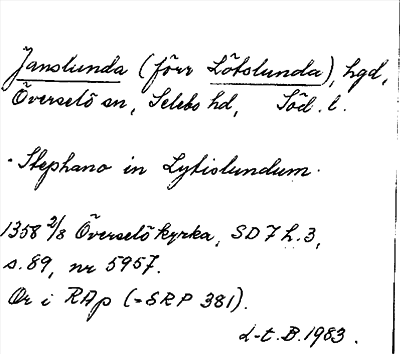 Janslunda (förr Lötslunda), hgd,
Överselö sn, Selebo hd, Söd. l.
Stephano in Lytislundum
1358 2/8 Överselö kyrka, SD 7 h. 3,
s. 89, nr 5957.
Or i RAp (=SRP 381).
L-t. B. 1983.